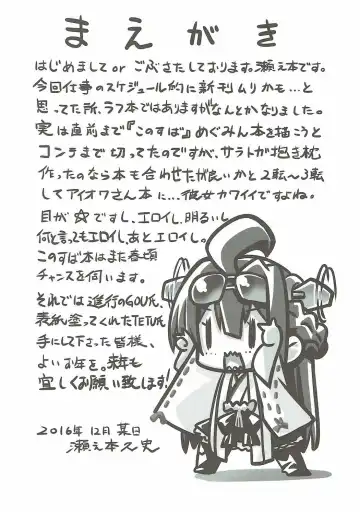 まえがき
はじめまして or ごぶさたしております。瀬之本です。
今回仕事のスケジュール的に新刊ムリかも…と
思ってた所、ラフ本ではありますがなんとかなりました。
実は直前まで『このすば』めぐみん本を描こうと
コンテまで切ってたのですが、サラトガ抱き枕
作ったのなら本も合わせたが良いかと2転〜3転
してアイオワさん本に…彼女カワイイですよね。
目が☆ですし、エロイし、明るいし
何と言ってもエロイし、あとエロイし。
このすば本はまた春頃
チャンスを伺います。
それでは進行のGOU氏、
表紙塗ってくれたTETU氏
手にして下さった皆様、
よいお年を。来年も
宜しくお願い致します!
2016年12月某日
瀬之本久史